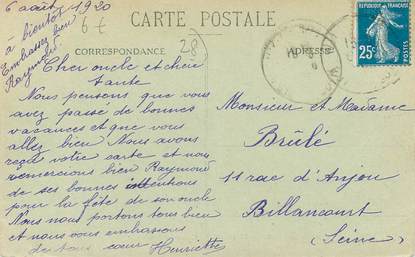 6 août 1920
à bientôt
Embrassez bien
Raymond
6f
CARTE POSTALE
CORRESPONDANCE
28
ADRESSE
REPUBLIQUE FRANÇAISE
25c
POSTES
Cher oncle et chère
tante
Nous pensons que vous
avez passé de bonnes
vacances et que vous
allez bien. Nous avons
reçu votre carte et nous
remercions bien Raymond
de ses bonnes intentions
pour la fête de son oncle
Nous nous portons tous bien
et nous vous embrassons
de tous cœur Henriette
Monsieur et Madame
Brûlé
11 rue d'Anjou
Billancourt
(Seine)